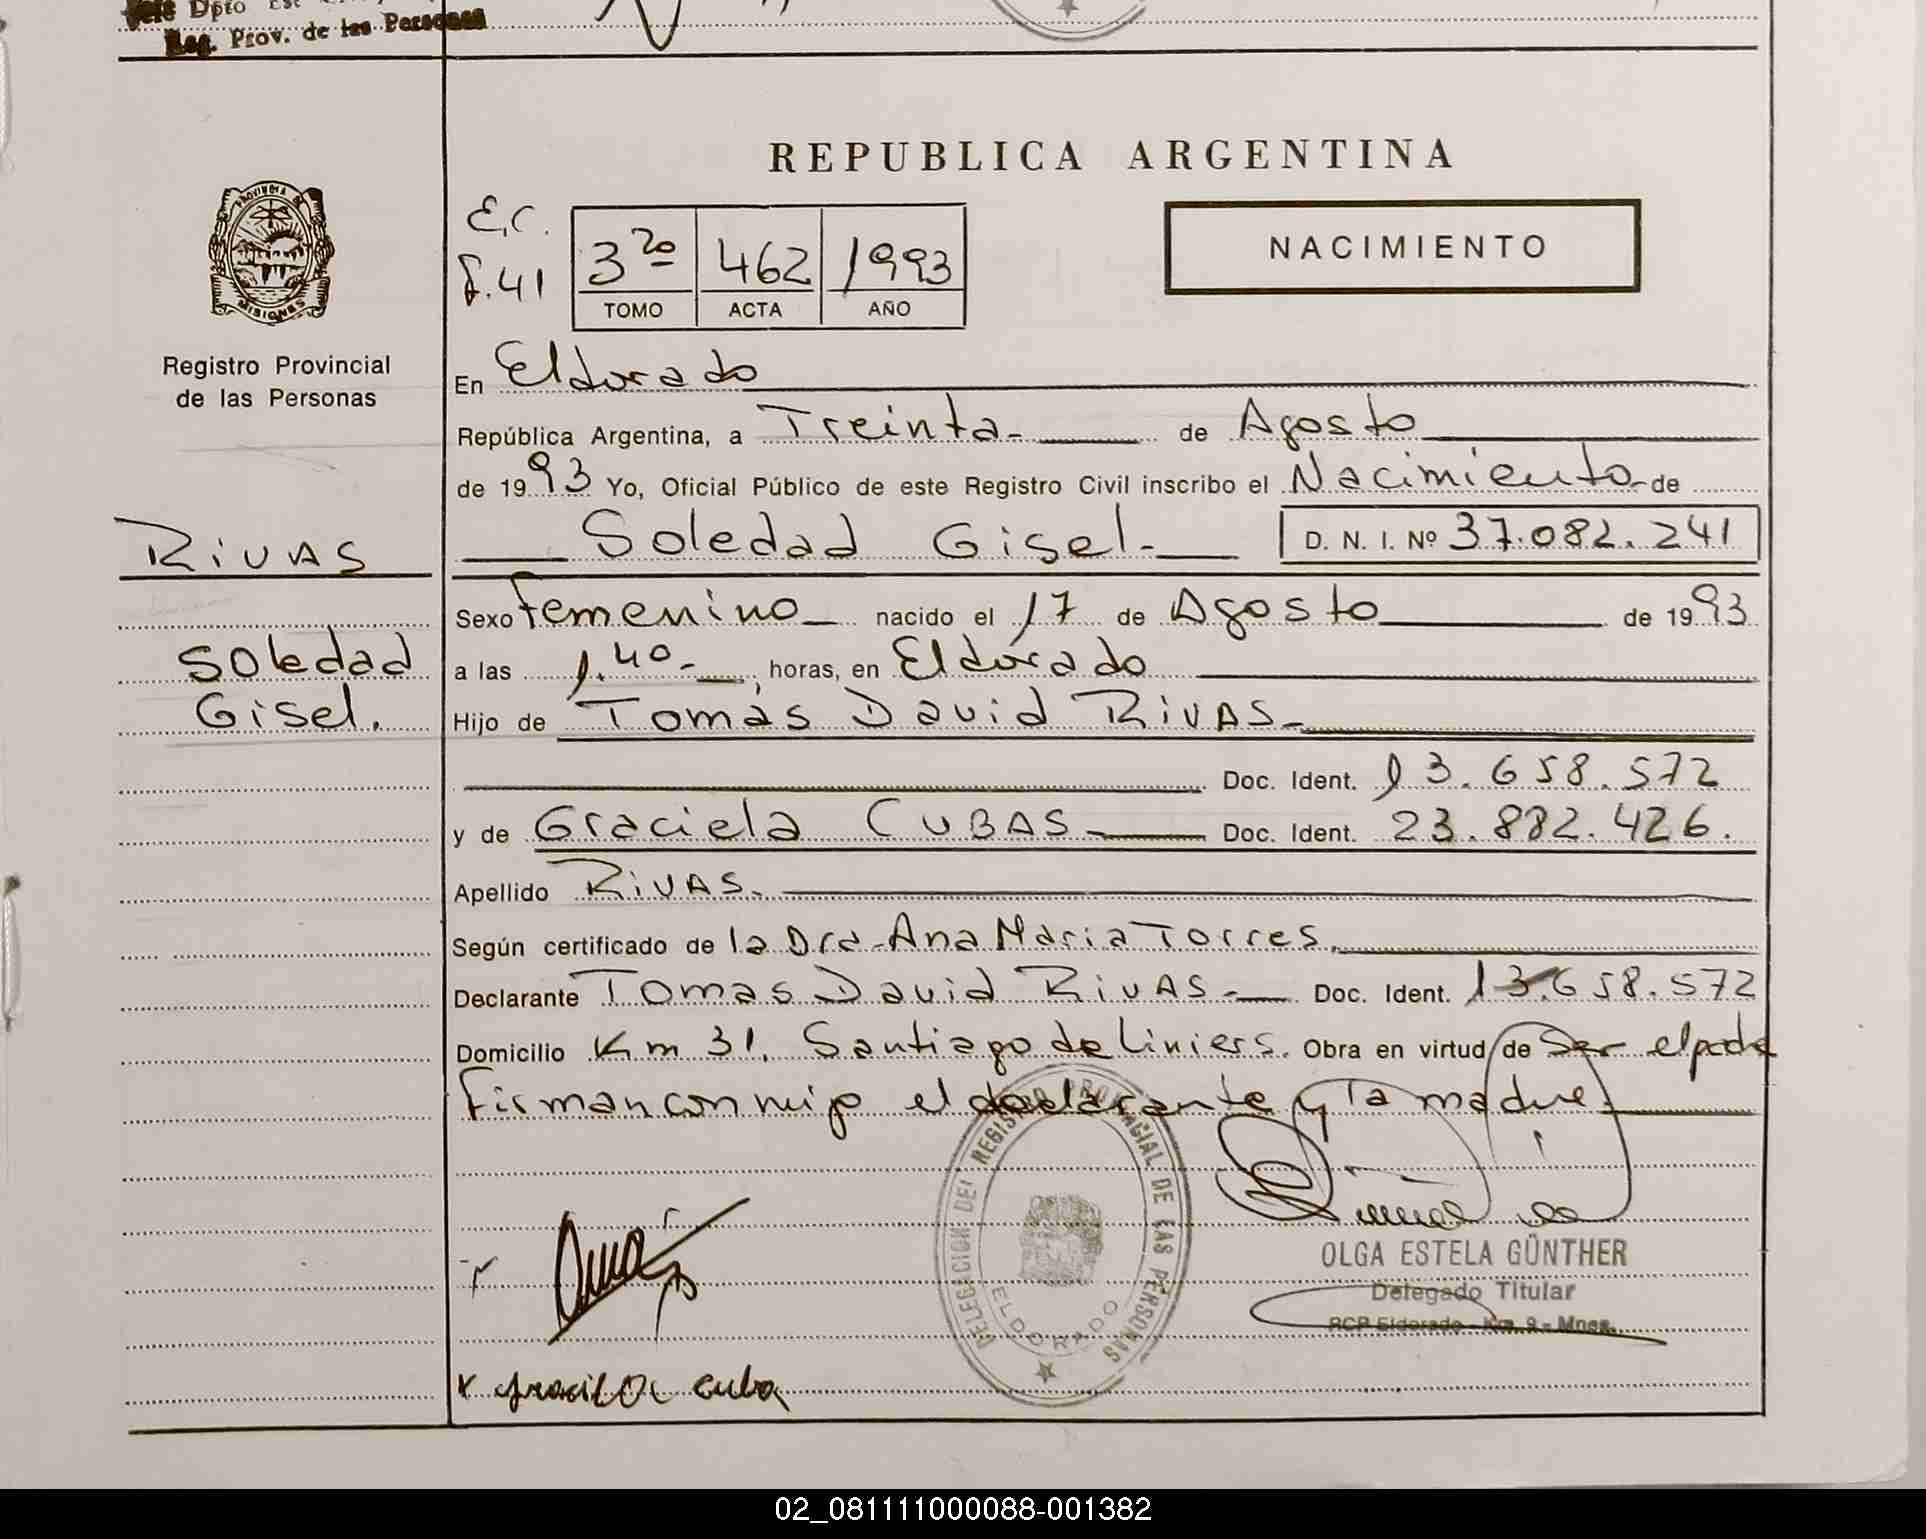 Dpto
Reg. Prov. de las Personas
REPUBLICA ARGENTINA
PROVINCIA DE
MISIONES
Registro Provincial
de las Personas
E.C.
f.41
3ro 462 1993
TOMO ACTA AÑO
NACIMIENTO
En Eldorado
República Argentina, a Treinta- de Agosto
de 1993 Yo, Oficial Público de este Registro Civil inscribo el Nacimiento de
RIVAS
Soledad Gisel.- D. N. I. Nº 37.082.241
Sexo Femenino nacido el 17 de Agosto de 1993
Soledad
Gisel.
a las 1.40- horas, en Eldorado
Hijo de Tomás David RIVAS-
Doc. Ident. 13.658.572
y de Graciela CUBAS- Doc. Ident. 23.882.426.
Apellido RIVAS.
Según certificado de la Dra. Ana Maria Torres.
Declarante Tomas David RIVAS- Doc. Ident. 13.658.572
Domicilio Km 31, Santiago de Liniers. Obra en virtud de Ser el padre
Firman conmigo el declarante y la madre.
DELEGACION DEL REGISTRO PROVINCIAL DE LAS PERSONAS
ELDORADO
OLGA ESTELA GÜNTHER
Delegado Titular
RCP Eldorado - Km. 9 - Mnes.
02_081111000088-001382